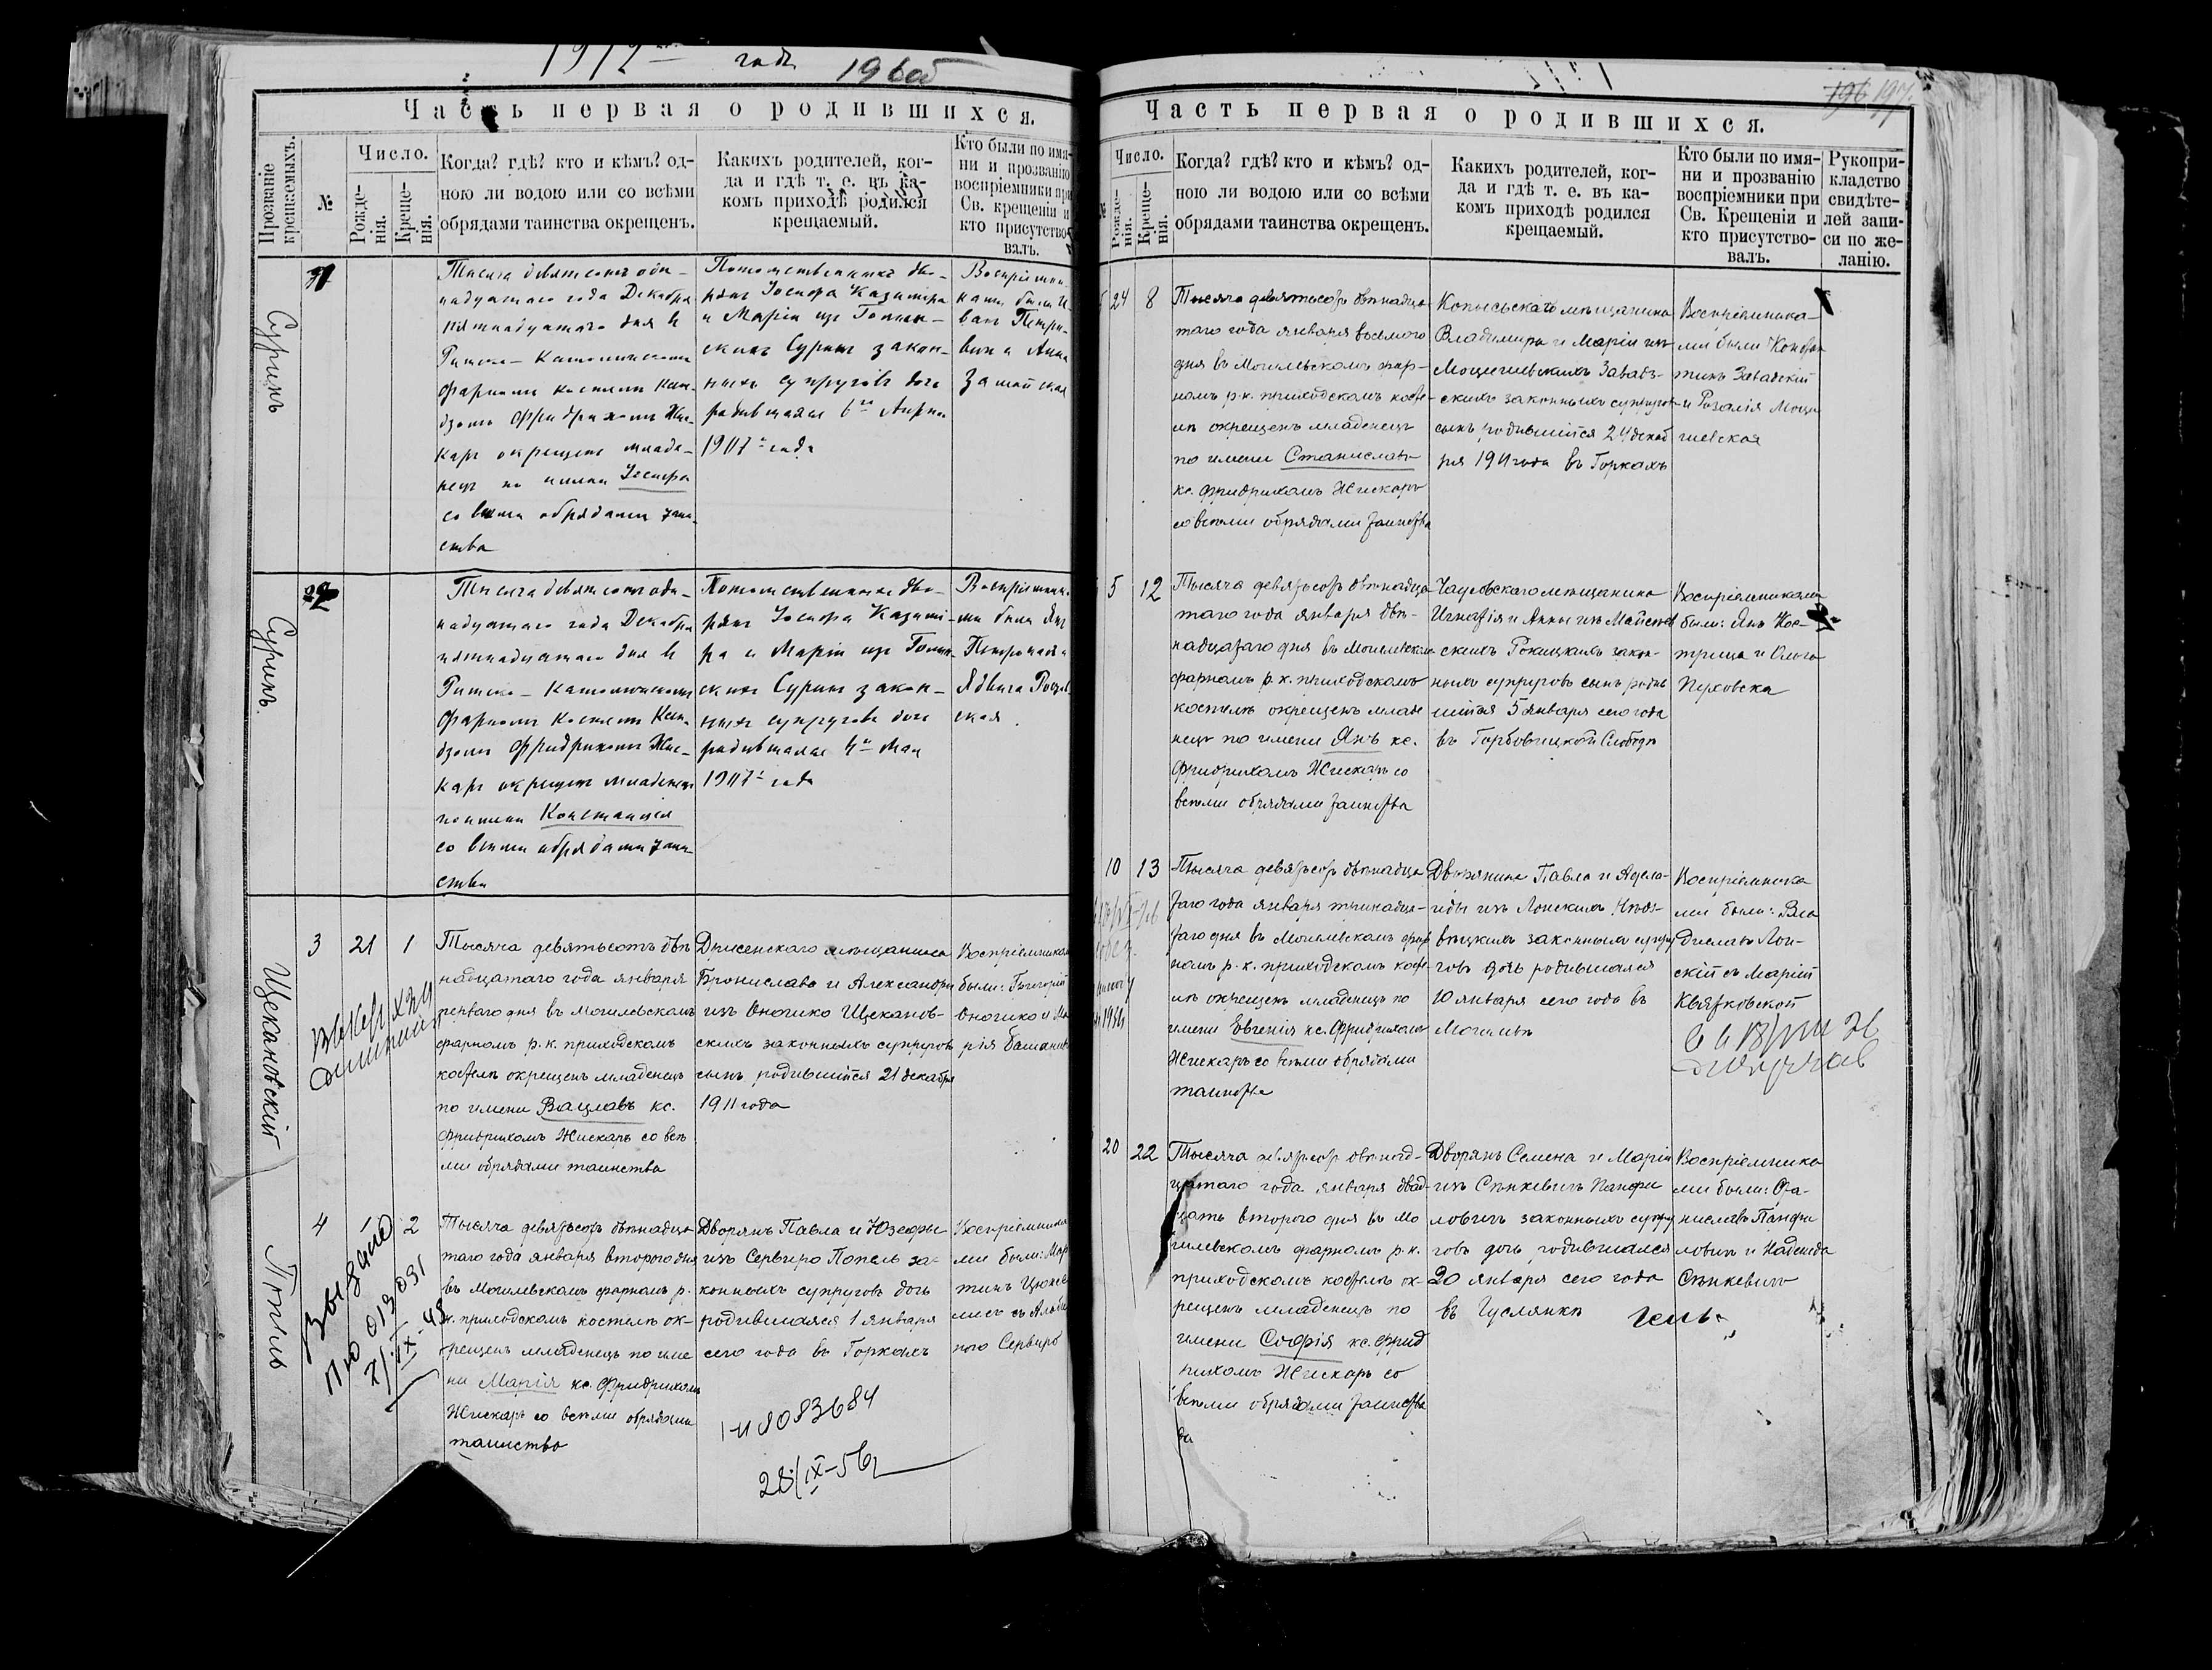 1912 годъ 196об
Часть первая о родившихся.
Прозваніе крещаемыхъ.
№
Число.
Рожде-
нія.
Креще-
нія.
Когда? гдѣ? кто и кѣмъ? од-
ною ли водою или со всѣми
обрядами таинства окрещенъ.
Какихъ родителей, ког-
да и гдѣ т. е. въ ка-
комъ приходѣ родился
крещаемый.
Кто были по имя-
ни и прозванію
воспріемники при
Св. крещеніи и
кто присутство-
валъ.
Суринъ
1
Тысяча девятьсотъ оди-
надцатаго года Декабря
пятнадцатаго дня въ
Римско-Католическомъ
фарномъ костелѣ Ксен-
дзомъ Фридрихомъ Жис-
каръ окрещенъ младе-
нецъ по имени Іосифа
со всѣми обрядами таин-
ства
Потомственныхъ дво-
рянъ Іосифа Казиміра
и Маріи изъ
Суринъ закон-
ныхъ супруговъ дочь
родившаяся 6го
1907го года
Воспріемни-
ками были И-
ванъ Петро-
вичъ и Анна
Суринъ.
2
Тысяча девятьсотъ оди-
надцатаго года Декабря
пятнадцатаго дня въ
Римско-Католическомъ
фарномъ костелѣ Ксен-
дзомъ Фридрихомъ Жис-
каръ окрещенъ младенецъ
по имени Констанція
со всѣми обрядами таин-
ства
Потомственныхъ дво-
рянъ Іосифа Казимі-
ра и Маріи изъ
Суринъ закон-
ныхъ супруговъ дочь
родившаяся 4го Мая
1907го года
Воспріемника-
ми были Янъ
Ядвига
ская.
Щекановскій
3 21 1
Тысяча девятьсотъ двѣ
надцатаго года января
перваго дня въ Могилевскомъ
фарномъ р. к. приходскомъ
костелѣ окрещенъ младенецъ
по имени Вацлавъ кс.
Фридрихомъ Жискаръ со всѣ
ми обрядами таинства
Дрисенскаго мѣщанина
Бронислава и Александры
изъ Оношко Щеканов-
скихъ законныхъ супруговъ
сынъ родившійся 21 декабря
1911 года
Воспріемниками
были: Григорій
Оношко и Ма
рія
Попель
4 2
Тысяча девятьсотъ двѣнадца
таго года января второго дня
въ Могилевскомъ фарномъ р.
к. приходскомъ костелѣ ок-
рещенъ младенецъ по име
ни Марія кс. Фридрихомъ
Жискаръ со всѣми обрядами
таинства
Дворянъ Павла и Юзефы
изъ Сервиро Попель за-
конныхъ супруговъ дочь
родившаяся 1 января
сего года въ Горкахъ
Воспріемника
ми были: Мар
тинъ
ного Сервиро
Выдано
7/IX-48
8083684
28/IX-56
196 197
Часть первая о родившихся.
Число.
Рожде-
нія.
Креще-
нія.
Когда? гдѣ? кто и кѣмъ? од-
ною ли водою или со всѣми
обрядами таинства окрещенъ.
Какихъ родителей, ког-
да и гдѣ т. е. въ ка-
комъ приходѣ родился
крещаемый.
Кто были по имя-
ни и прозванію
воспріемники при
Св. Крещеніи и
кто присутство-
валъ.
Рукопри-
кладство
свидѣте-
лей запи-
си по же-
ланію.
24 8
Тысяча девятьсотъ двѣнадца
таго года января восьмого
дня въ Могилевскомъ фар-
номъ р.к. приходскомъ косте-
лѣ окрещенъ младенецъ
по имени Станиславъ
кс. Фридрихомъ Жискаръ
со всѣми обрядами таинства
Копысьскаго мѣщанина
Владиміра и Маріи изъ
Мощичевскихъ Завад-
скихъ законныхъ супругов
сынъ родившійся 24 декаб
ря 1911 года въ Горкахъ
Воспріемника-
ми были Констан
тинъ Завадскій
и Розалія Мощи
чевская
5 12
Тысяча девятьсотъ двѣнадца
таго года января двѣ-
надцатаго дня въ Могилевском
фарномъ р. к. приходскомъ
костелѣ окрещенъ младе
нецъ по имени Янъ кс.
Фридрихомъ Жискаръ со
всѣми обрядами таинства
Чаусовскаго мѣщанина
Игнатія и Анны изъ
скихъ Рокицкихъ закон-
ныхъ супруговъ сынъ родив
шійся 5 января сего года
въ Горбовицкой Слободѣ
Воспріемниками
были: Янъ Кос-
трица и Ольга
Пуховска
10 13
Тысяча девятьсотъ двѣнадца
таго года января тринадца-
таго дня въ Могилевскомъ фар
номъ р. к. приходскомъ косте-
лѣ окрещенъ младенецъ по
имени Евгенія кс. Фридрихомъ
Жискаръ со всѣми обрядами
таинства
Дворянина Павла и Адела-
иды изъ Лонскихъ
законныхъ супру
говъ дочь родившаяся
10 января сего года въ
Могилевѣ
Воспріемника
ми были: Вла
диславъ Лон-
скій съ Маріей
Квятковской
20 22
Тысяча девятьсотъ двѣнад-
цатаго года января двад-
цать второго дня въ Мо
гилевскомъ фарномъ р. к.
приходскомъ костелѣ ок-
рещенъ младенецъ по
имени Софія кс. Фрид
рихомъ Жискаръ со
всѣми обрядами таинства
Дворянъ Семена и Маріи
изъ Сѣнкевичъ Панфи
ловичъ законныхъ супру
говъ дочь родившаяся
20 января сего года
въ Гуслянкѣ
Воспріемника
ми были: Ста-
ниславъ Панфи
ловичъ и Надежда
Сѣнкевичъ